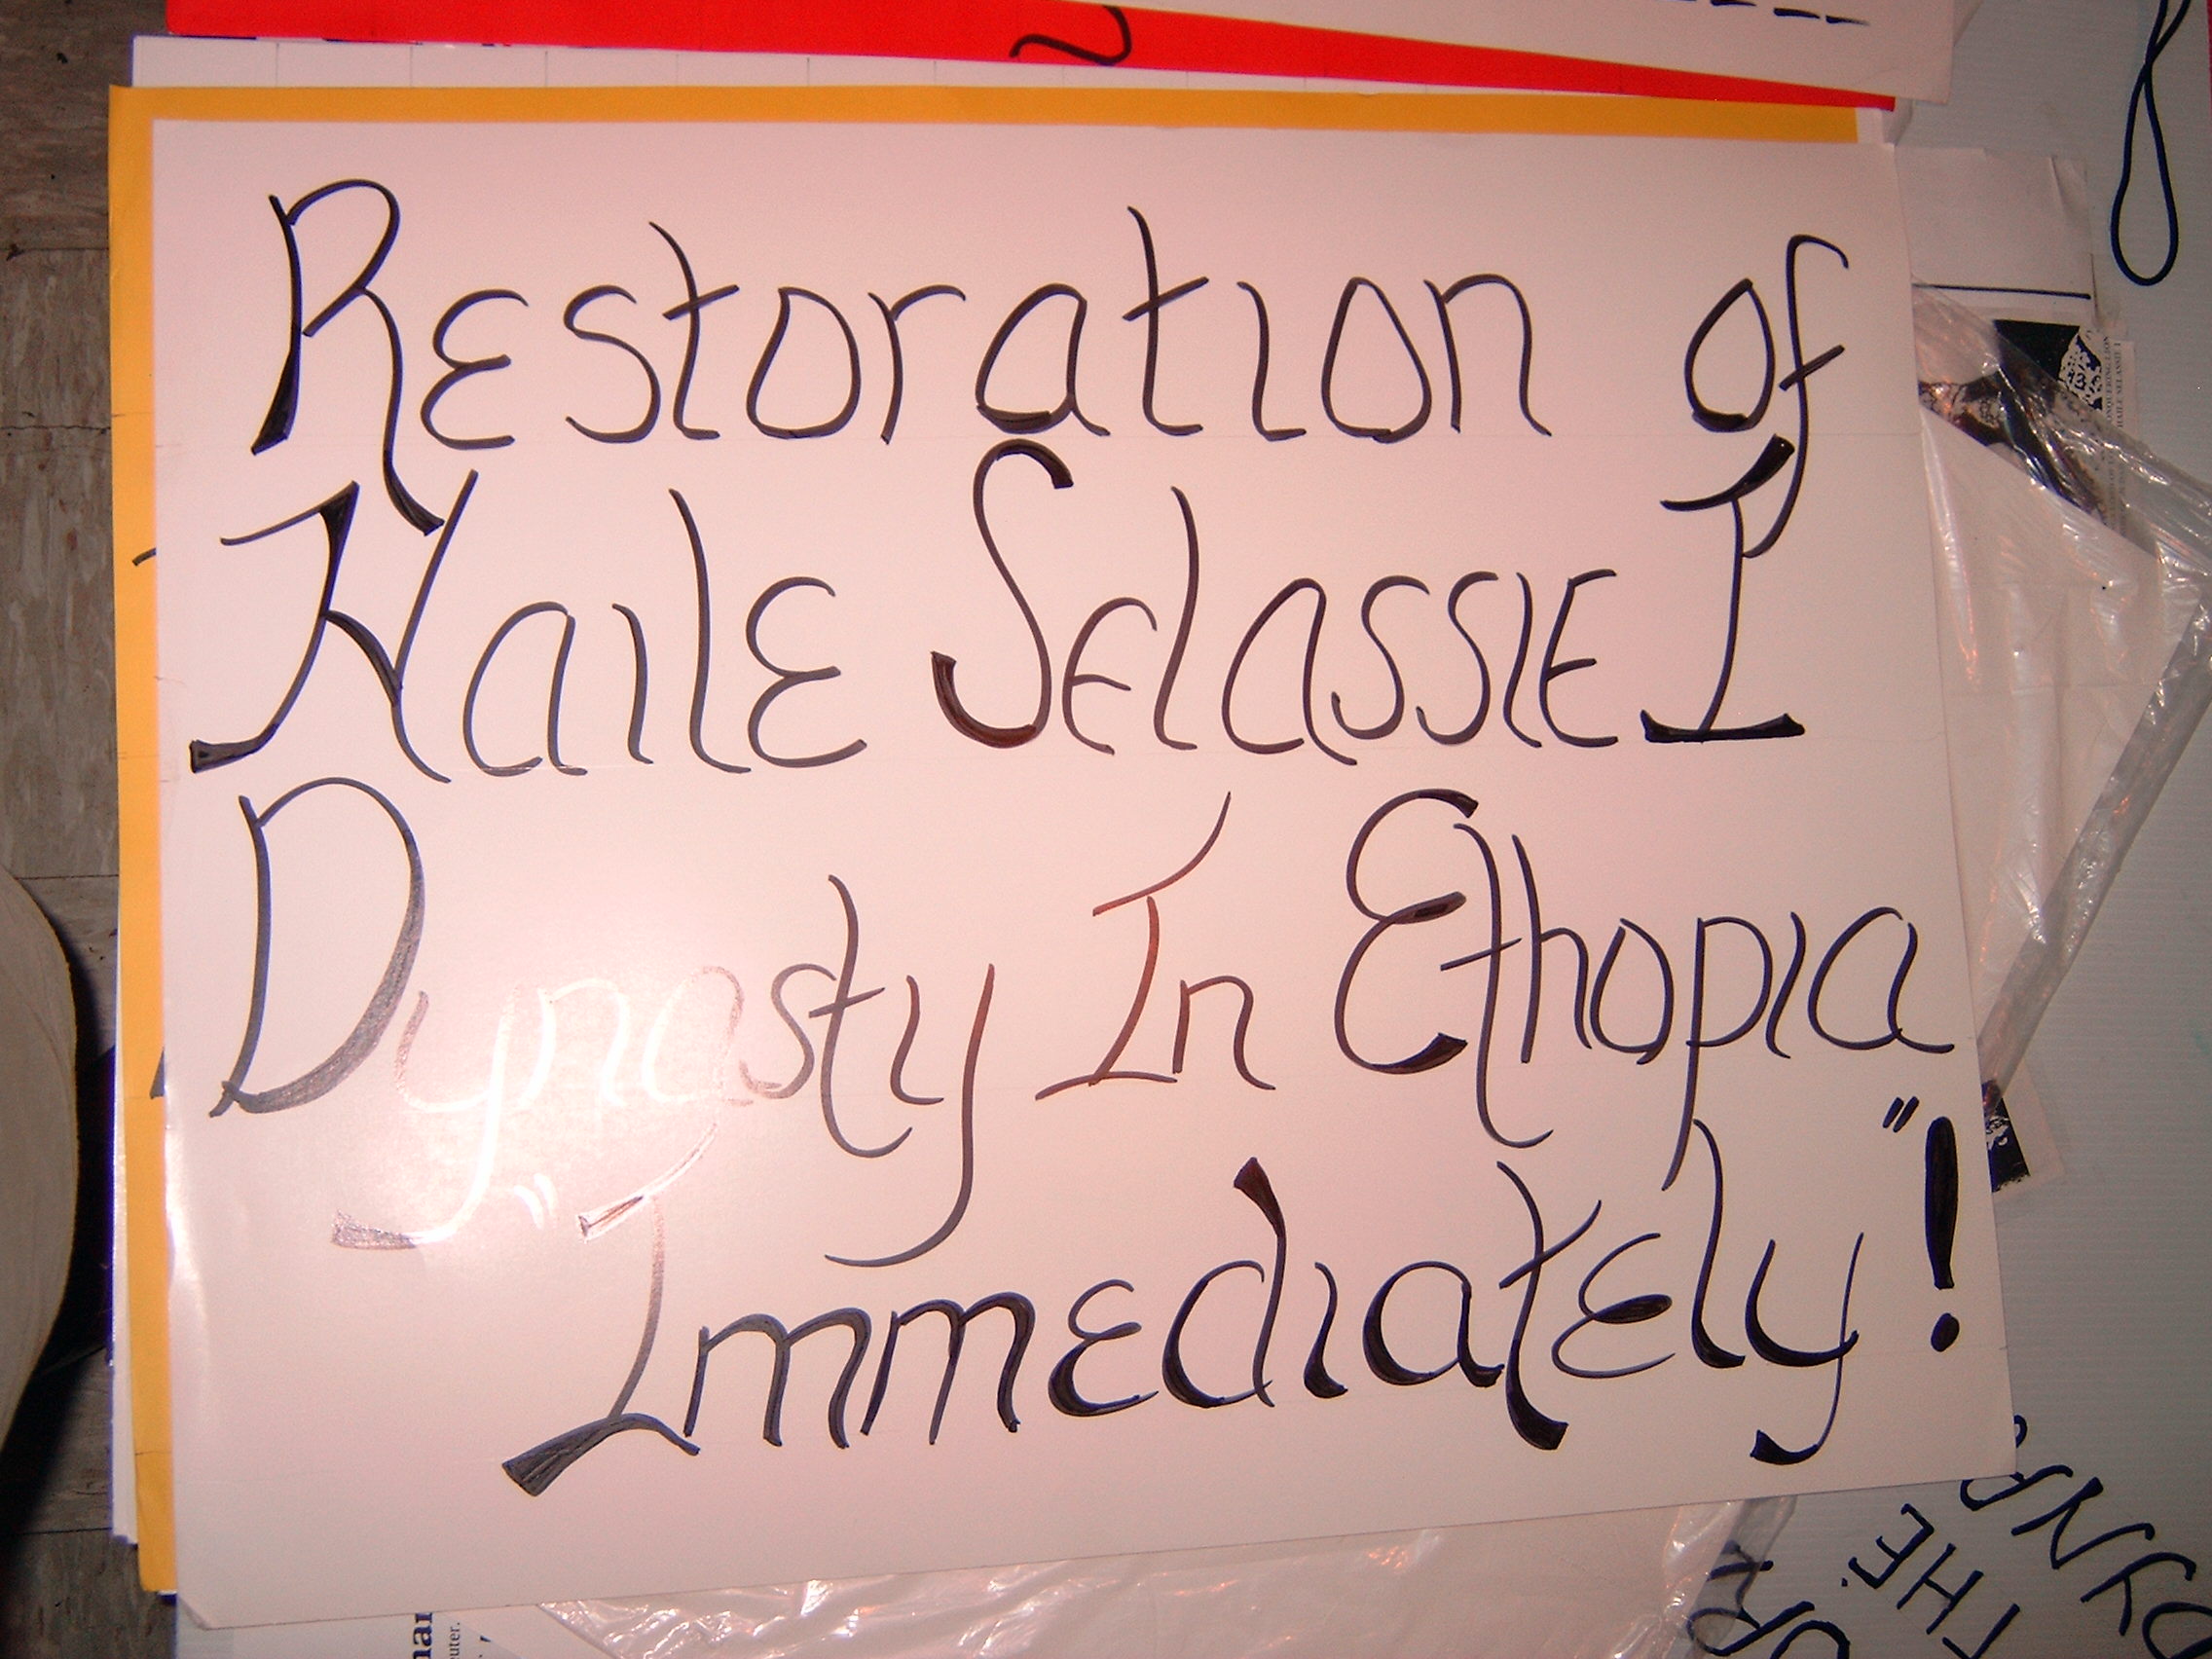 Restoration of
Haile Selassie I
Dynasty In Ethopia
"Immediately"!
THE